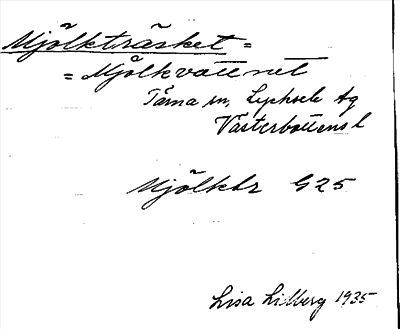 Mjölkträsket =
= Mjölkvattnet
Tärna sn, Lycksele tg
Västerbottens l
Mjölkbr G25
Lisa Lidberg 1935